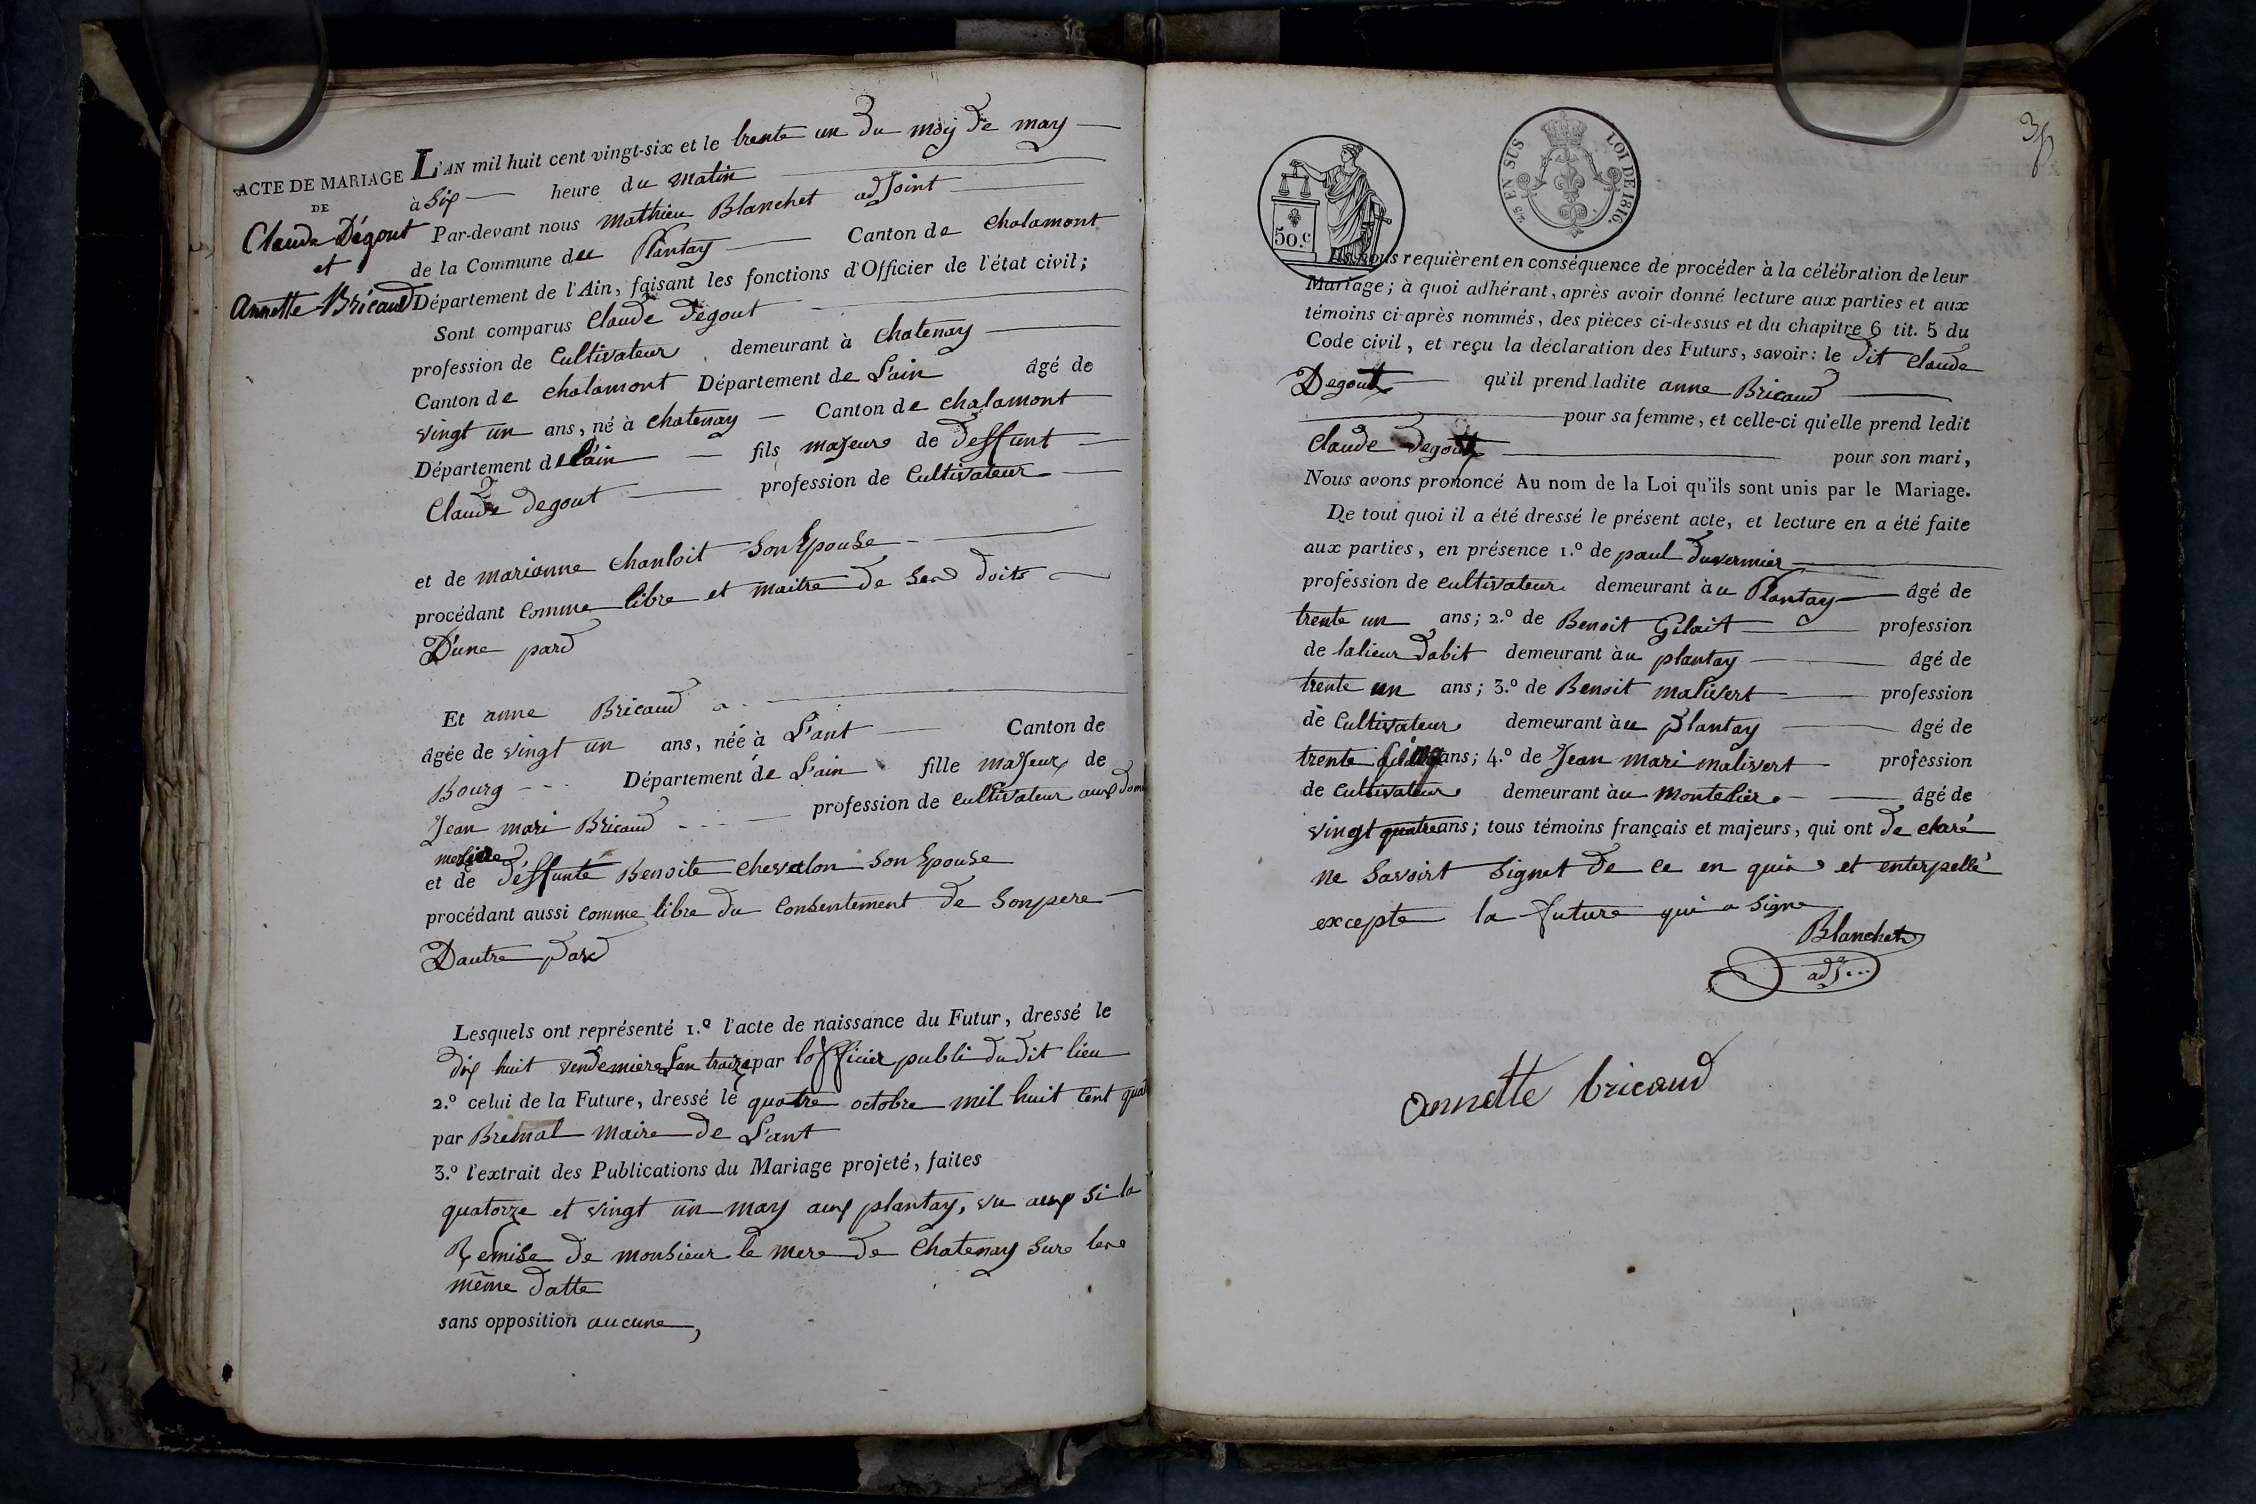 ACTE DE MARIAGE
DE
Claude Dégout
et
annette Bricaud
L'AN mil huit cent vingt-six et le trente un du moy de may
à Six heure du matin
Par-devant nous mathieu Blanchet adjoint
de la Commune deu Plantay Canton de chalamont
Département de l'Ain, faisant les fonctions d'Officier de l'état civil;
Sont comparus Claude degout
profession de Cultivateur demeurant à chatenay
Canton de chalamont Département de L'ain âgé de
vingt un ans, né à chatenay Canton de chalamont
Département de L'ain fils majeur de deffunt
Claude degout profession de Cultivateur
et de marianne chanloit Son Epouse
procédant comme libre et maitre de ses doits
D'une pard
Et anne Bricaud
âgée de vingt un ans, née à L'ant Canton de
Bourg Département de L'ain fille majeur de
Jean mari Bricaud profession de cultivateur aux
et de deffunte Benoite chevalon Son Epouse
procédant aussi comme libre du consentement de Son pere
Dautre pard
Lesquels ont représenté 1.º l'acte de naissance du Futur, dressé le
dix huit vendemiere L'an traize par lofficier publi du dit lieu
2.º celui de la Future, dressé le quatre octobre mil huit cent
par maire de L'ant
3.º l'extrait des Publications du Mariage projeté, faites
quatorze et vingt un may aux plantay, vu aux si la
Remise de monsieur le mere de Chatenay sure les
même datte
sans opposition aucune,
50.c
2/5 EN SUS
LOI DE 1816.
Ils nous requièrent en conséquence de procéder à la célébration de leur
Mariage; à quoi adhérant, après avoir donné lecture aux parties et aux
témoins ci-après nommés, des pièces ci-dessus et du chapitre 6 tit. 5 du
Code civil, et reçu la déclaration des Futurs, savoir: le dit Claude
Degout qu'il prend ladite anne Bricaud
pour sa femme, et celle-ci qu'elle prend ledit
Claude Degout pour son mari,
Nous avons prononcé Au nom de la Loi qu'ils sont unis par le Mariage.
De tout quoi il a été dressé le présent acte, et lecture en a été faite
aux parties, en présence 1.º de paul duvernier
profession de cultivateur demeurant à u Plantay âgé de
trente un ans; 2.º de Benoit Gilait profession
de talieur dabit demeurant à u plantay âgé de
trente un ans; 3.º de Benoit malivert profession
de Cultivateur demeurant à u plantay âgé de
trente cinq ans; 4.º de Jean mari malivert profession
de cultivateur demeurant à u montelier âgé de
vingt quatre ans; tous témoins français et majeurs, qui ont de claré
ne Savoirt Signet de ce en quis et enterpellé
excepte la future qui a Signe
Blanchet
adj...
annette bricaud